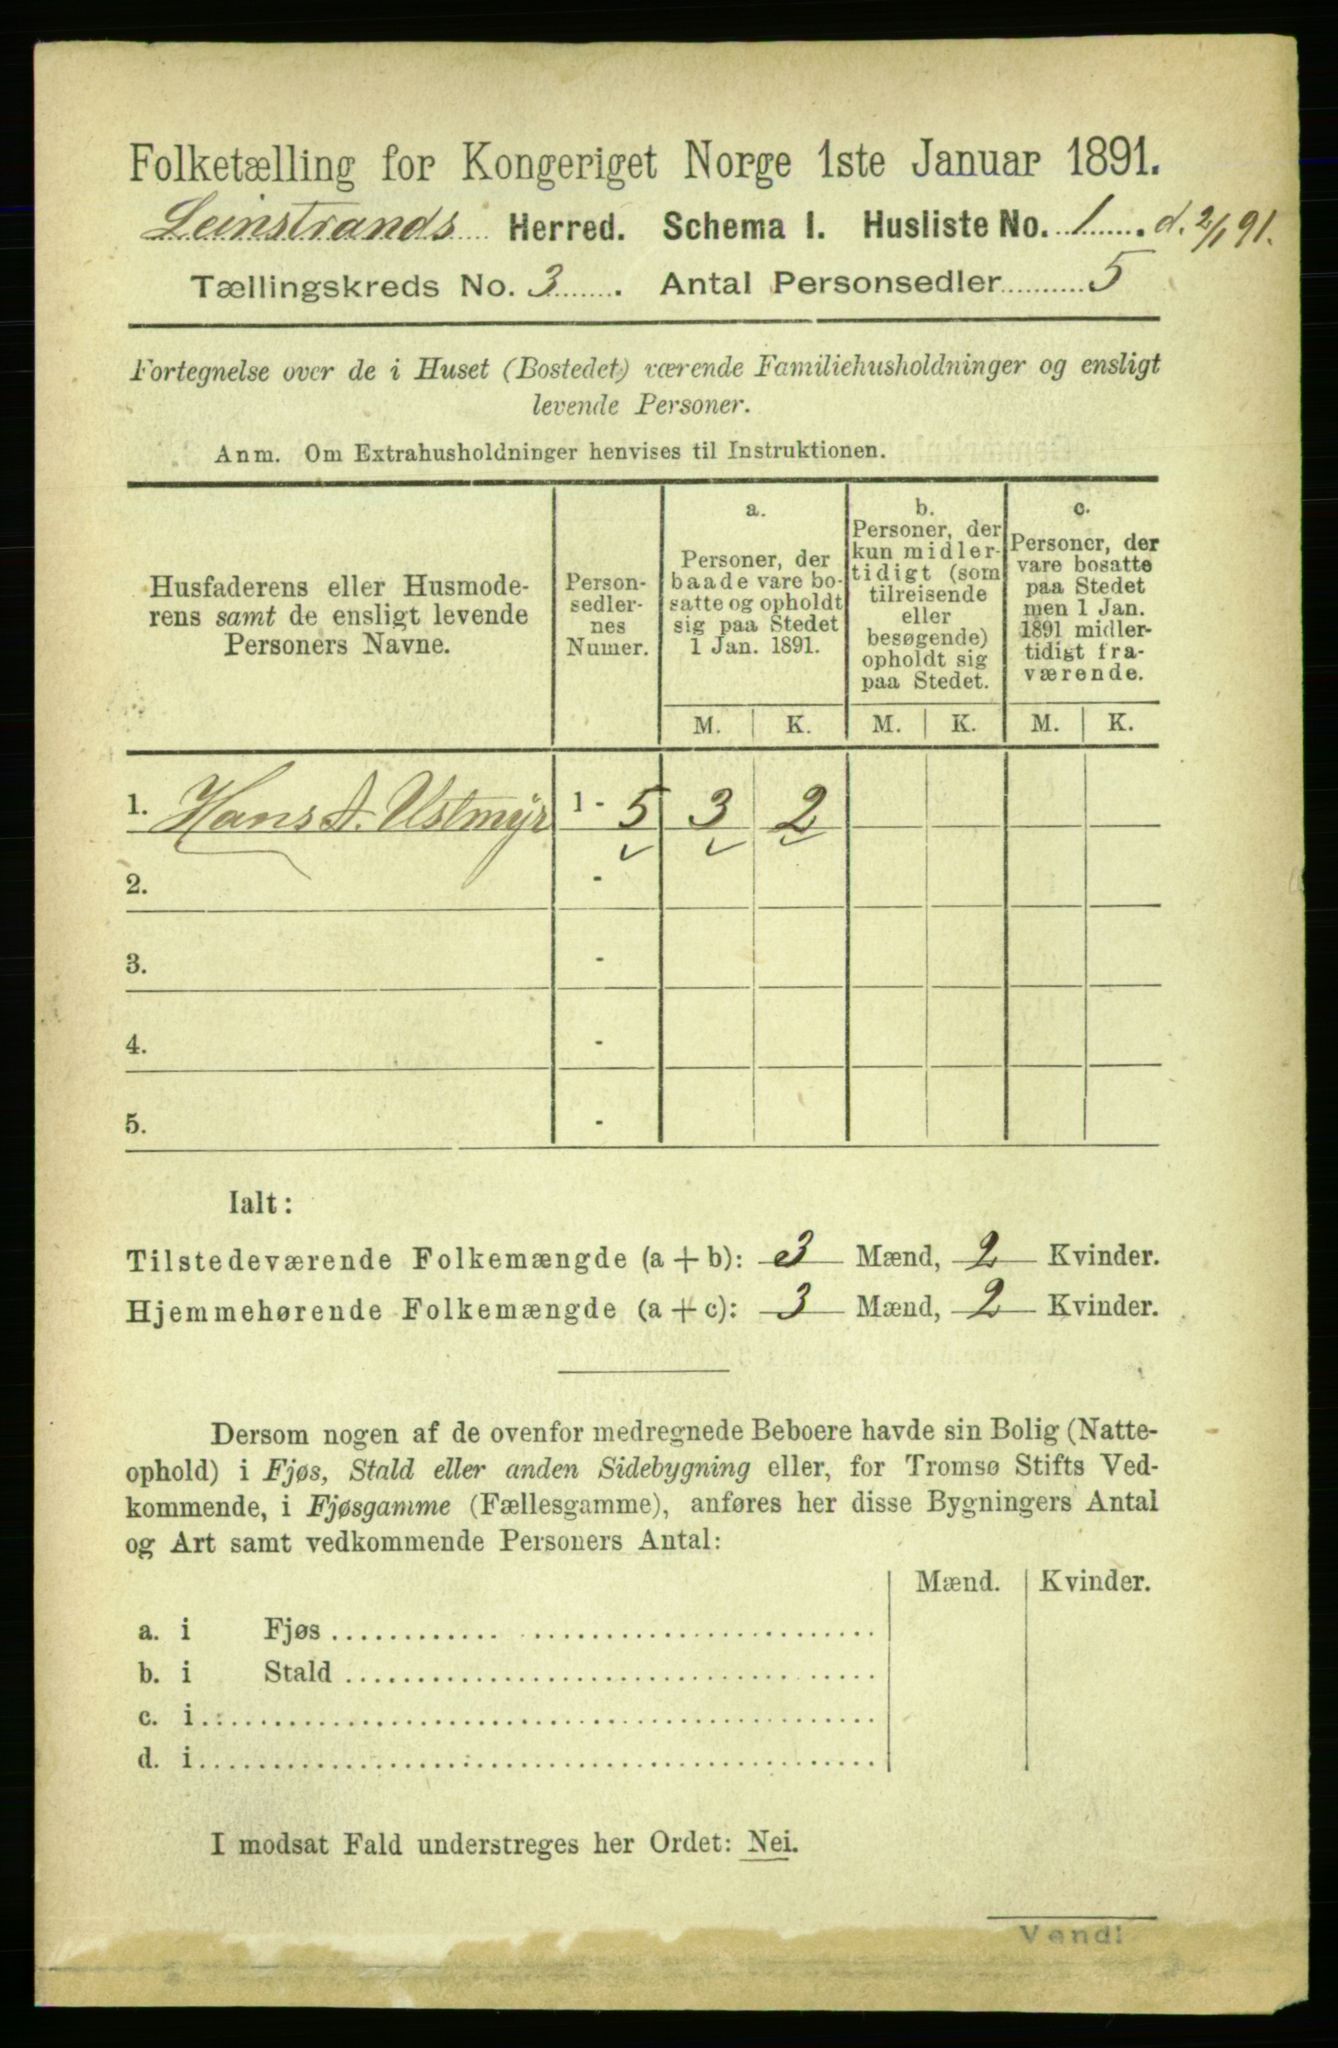 Folketælling for Kongeriget Norge 1ste Januar 1891.
Leinstrands Herred. Schema I. Husliste No. 1. d. 2/1 91.
Tællingskreds No. 3. Antal Personsedler 5
Fortegnelse over de i Huset (Bostedet) værende Familiehusholdninger og ensligt
levende Personer.
Anm. Om Extrahusholdninger henvises til Instruktionen.
Husfaderens eller Husmode-
rens samt de ensligt levende
Personers Navne.
Person-
sedler-
nes
Numer.
a.
Personer, der
baade vare bo-
satte og opholdt
sig paa Stedet
1 Jan. 1891.
b.
Personer, der
kun midler-
tidigt (som
tilreisende
eller
besøgende)
opholdt sig
paa Stedet.
c.
Personer, der
vare bosatte
paa Stedet
men 1 Jan.
1891 midler-
tidigt fra-
værende.
M. K. M. K. M. K.
1. Hans A. Ustmyr 1 - 5 3 2
2. -
3. -
4. -
5. -
Ialt:
Tilstedeværende Folkemængde (a + b): 3 Mænd, 2 Kvinder.
Hjemmehørende Folkemængde (a + c): 3 Mænd, 2 Kvinder.
Dersom nogen af de ovenfor medregnede Beboere havde sin Bolig (Natte-
ophold) i Fjøs, Stald eller anden Sidebygning eller, for Tromsø Stifts Ved-
kommende, i Fjøsgamme (Fællesgamme), anføres her disse Bygningers Antal
og Art samt vedkommende Personers Antal:
Mænd. Kvinder.
a. i Fjøs
b. i Stald
c. i
d. i
I modsat Fald understreges her Ordet: Nei.
Vend!